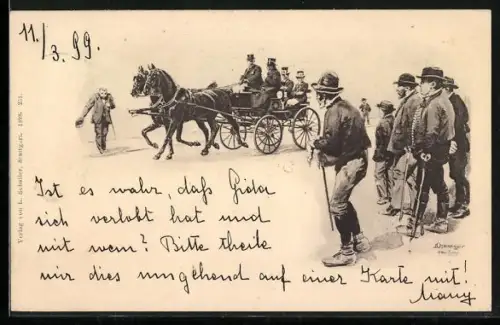 11./3.99.
Ist es wahr, daß Gida
sich verlobt hat und
mit wem? Bitte theile
mir dies umgehend auf einer Karte mit!
Many
Verlag von L. Schaller, Stuttgart. 1898.